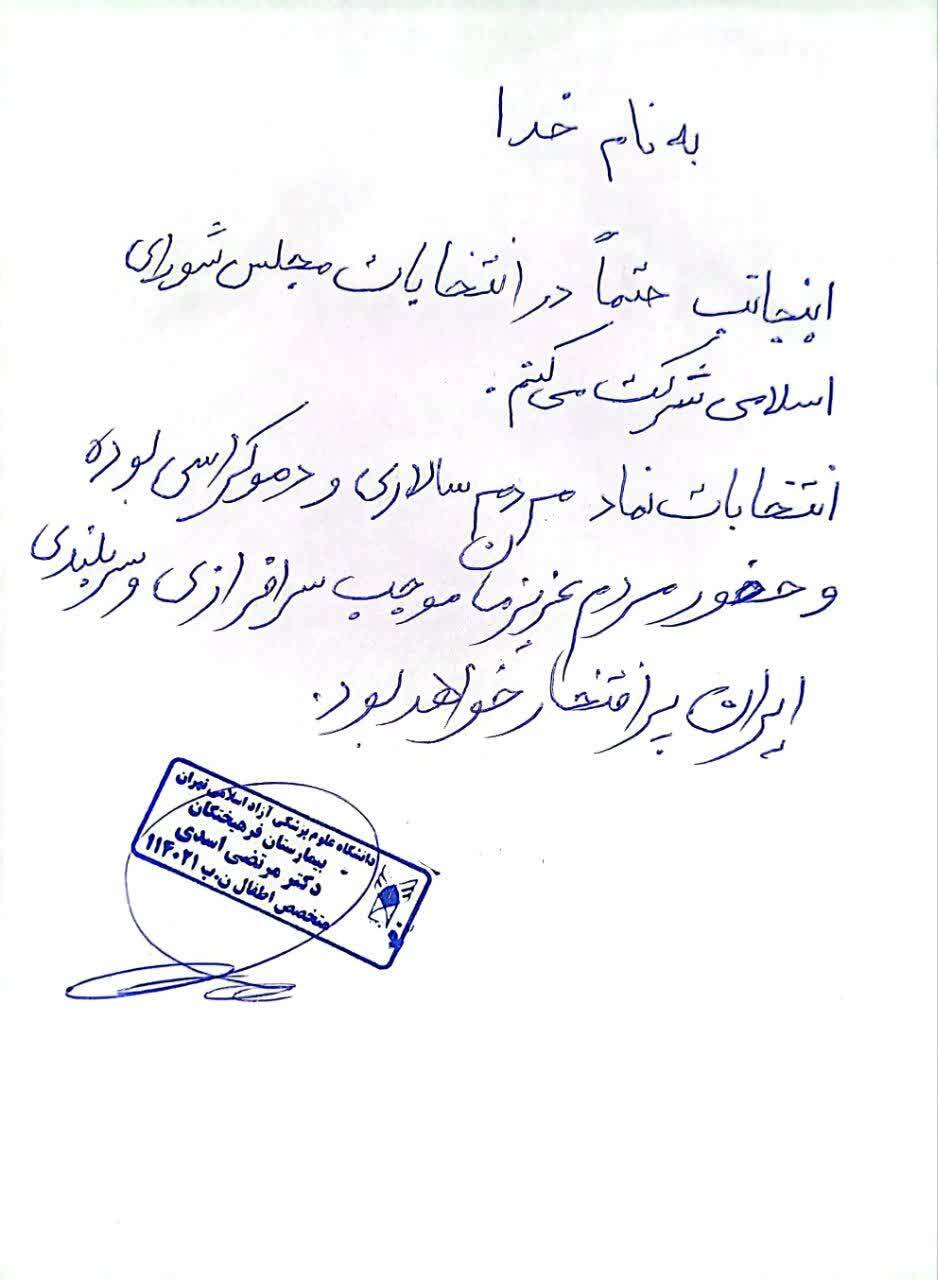 به نام خدا
اینجانب حتماً در انتخابات مجلس شورای
اسلامی شرکت می‌کنم.
انتخابات نماد مردم سالاری و دموکراسی بوده
و حضور مردم عزیز ما موجب سرافرازی و سربلندی
ایران پر افتخار خواهد بود.
دانشگاه علوم پزشکی آزاد اسلامی تهران
بیمارستان فرهیختگان
دکتر مرتضی اسدی
متخصص اطفال ن.پ ۱۱۴۰۲۱